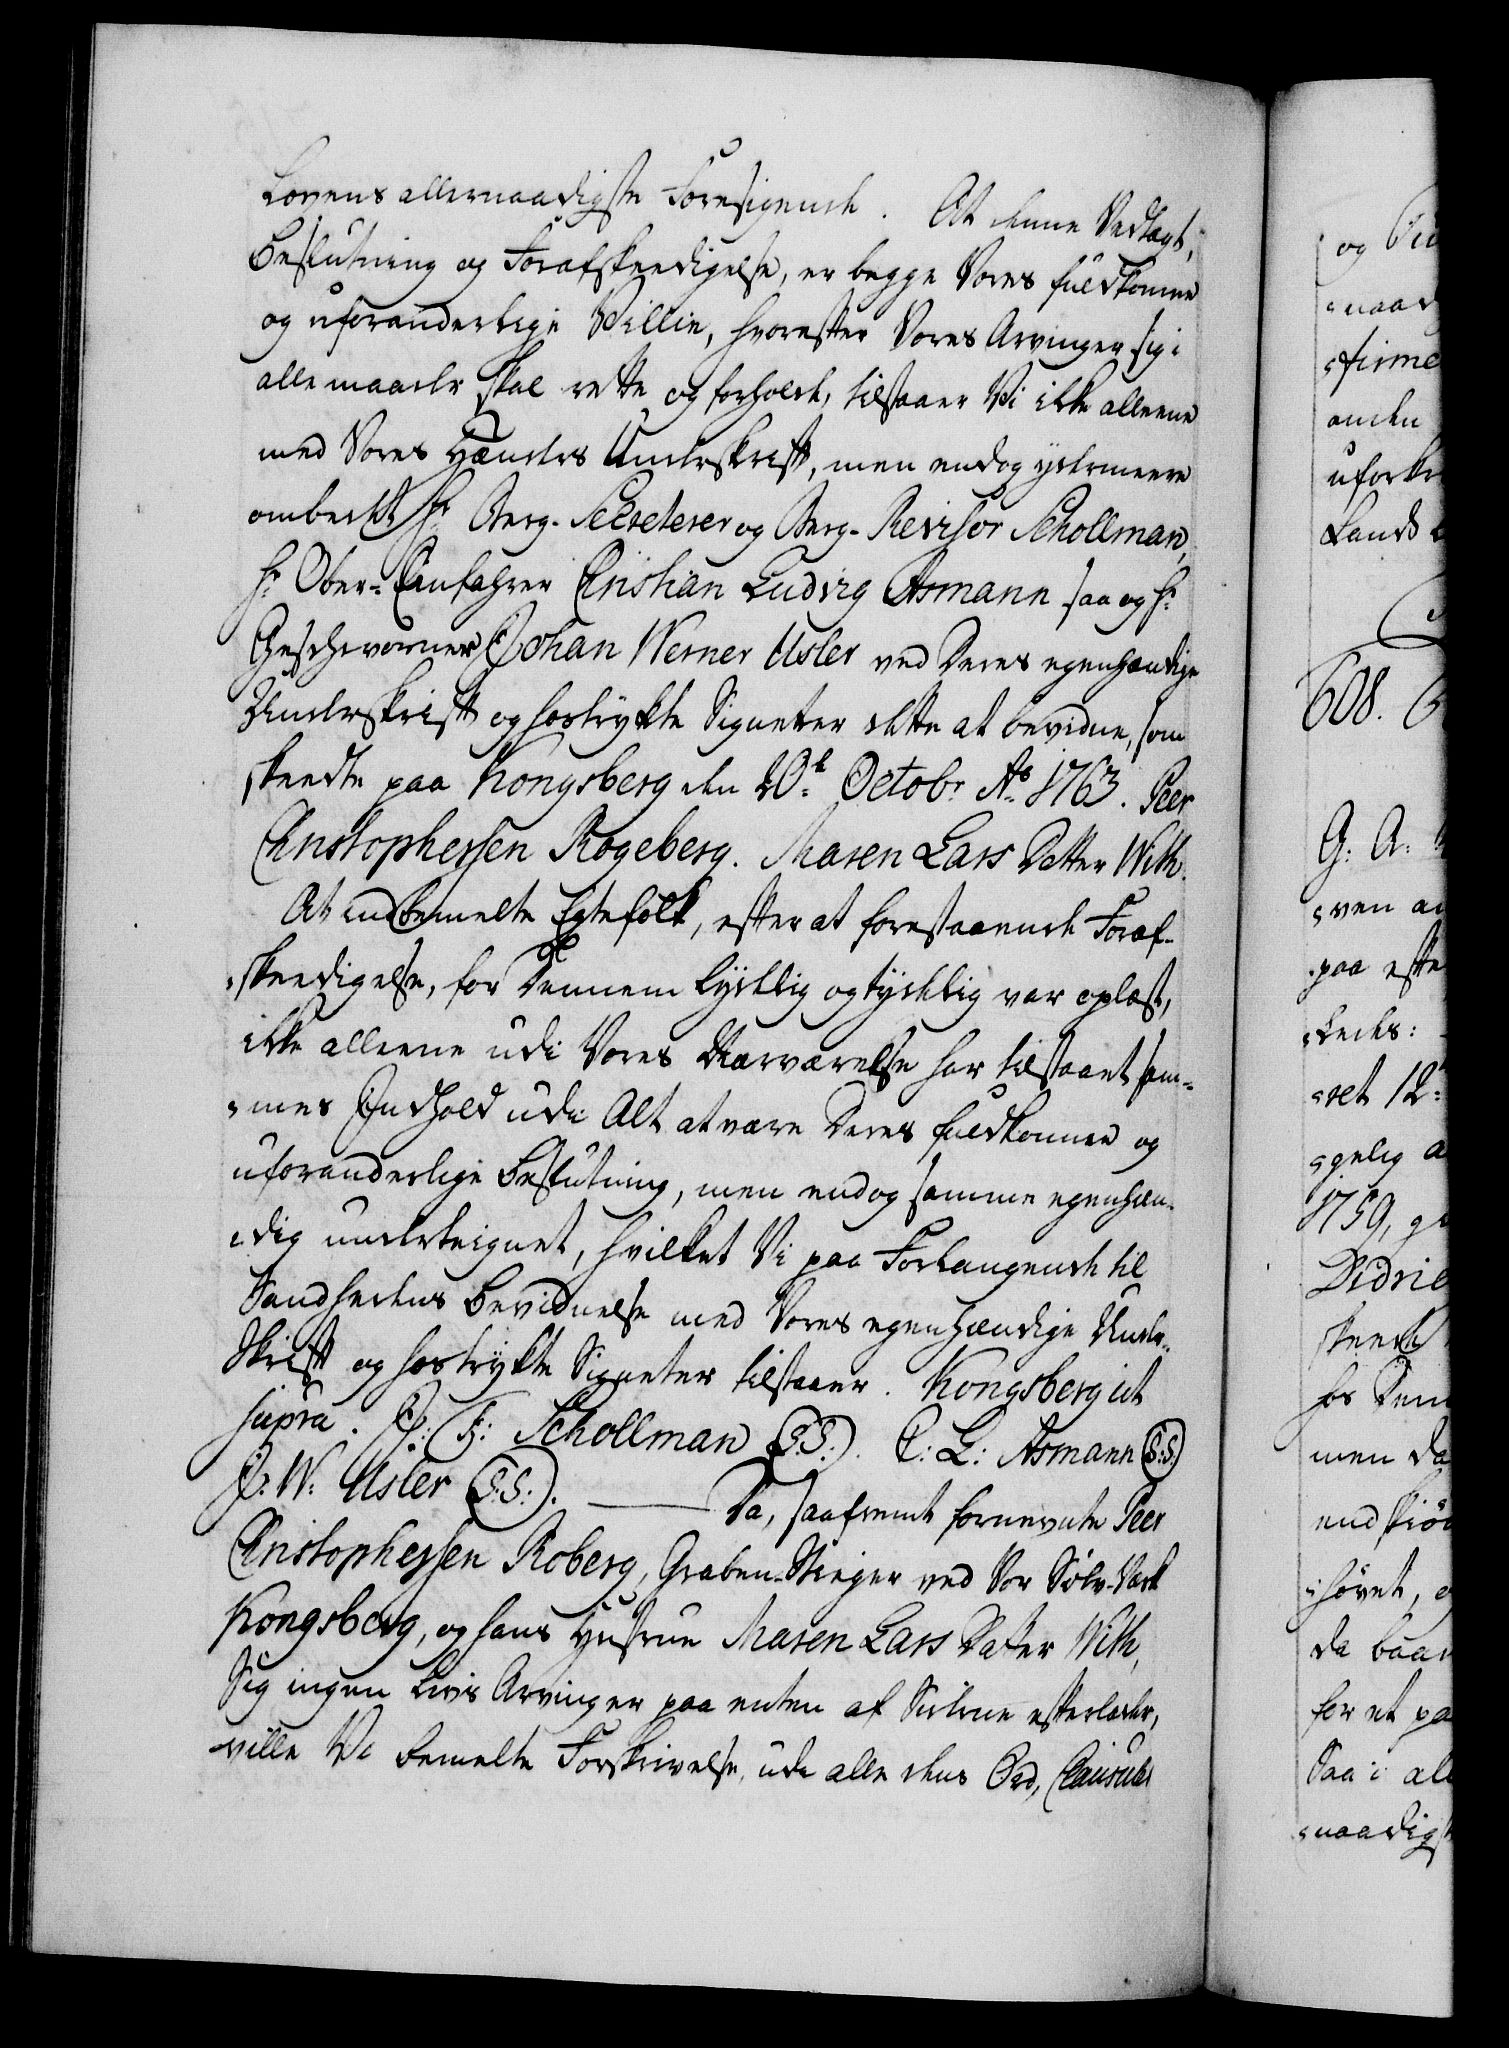 Lovens allernaadigste Foresigende. At denne Vedtægt,
Beslutning og Forafskeedigelse, er begge Vores fuldkomne
og uforanderlige Villie, hvorefter Vores Arvinger sig i
alle maader skal rette og forholde, tilstaaer Vi ikke alleene
med Vores Hænders Underskrift, men endog ydermeere
ombedet Hr Berg-Secreterer og Berg-Revisor Schollman,
Hr Ober-Einfahrer Christian Ludvig Asmann saa og Hr
Geschworner Johan Werner Usler ved Deres egenhændige
Underskrift og hostrykte Signetter dette at bevidne, som
skeedte paa Kongsberg den 20de Octobr Ao 1763. Peer
Christophersen Rogeberg. Maren Lars Datter With.
At indbemelte Egtefolk, efter at forestaaende Foraf-
skeedigelse, for Dennem lydelig og tydelig var oplæst,
ikke alleene udi Vores Nærværelse har tilstaaet sam-
mes Indhold udi Alt at være Deres fuldkomne og
uforanderlige Beslutning, men endog samme egenhæn-
dig undertegnet, hvilket Vi paa Forlangende til
Sandhedens Bevidnelse med Vores egenhændige Under-
Skrift og hostrykte Signeter tilstaaer. Kongsberg ut
supra. J: F: Schollman (L.S.). C: L: Asmann (L.S.)
J: W: Usler (L.S.). Da, saafremt fornevnte Peer
Christophersen Roberg, Graben-Steiger ved Vor Sølv-Værk
Kongsberg, og hans Hustrue Maren Lars Datter With,
Sig ingen Livs Arvinger paa enten af Siderne efterlader,
ville Vi bemelte Forskrivelse, udi alle dens Ord, Clausuler
og
naad
firme
anden
uforkr
Lands
608.
G: A:
ven an
paa efte
ret 12
gelig a
1759, g
Didric
skeede
hos Dem
men da
end skiø
høvet, o
da baar
for et pa
Saa i all
naadigst